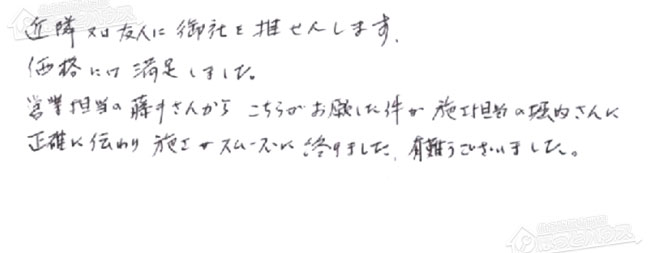 近隣又は友人に御社を推せんします。
価格には満足しました。
営業担当の藤井さんから こちらがお願した件が 施工担当の堀内さんに
正確に伝わり 施工がスムーズに終りました。有難うございました。